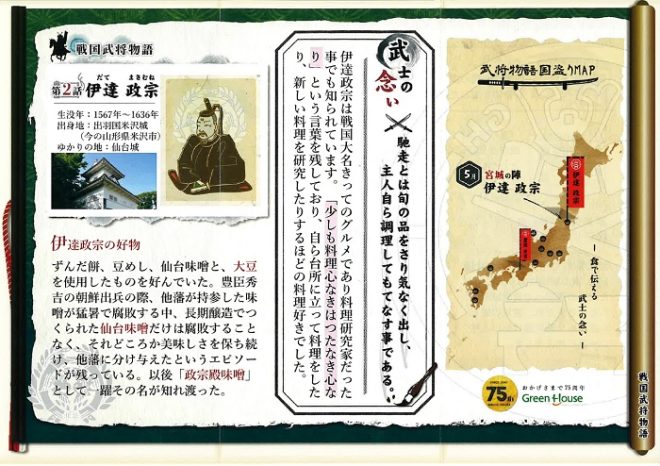 戦国武将物語
第2話 伊達 政宗
だて まさむね
生没年：1567年～1636年
出身地：出羽国米沢城
（今の山形県米沢市）
ゆかりの地：仙台城
伊達政宗の好物
ずんだ餅、豆めし、仙台味噌と、大豆
を使用したものを好んでいた。豊臣秀
吉の朝鮮出兵の際、他藩が持参した味
噌が猛暑で腐敗する中、長期醸造でつ
くられた仙台味噌だけは腐敗すること
なく、それどころか美味しさを保ち続
け、他藩に分け与えたというエピソー
ドが残っている。以後「政宗殿味噌」
として一躍その名が知れ渡った。
武士の念い
馳走とは旬の品をさり気なく出し、
主人自ら調理してもてなす事である。
伊達政宗は戦国大名きってのグルメであり料理研究家だった
事でも知られています。「少しも料理心なきはつたなき心な
り」という言葉を残しており、自ら台所に立って料理をした
り、新しい料理を研究したりするほどの料理好きでした。
武将物語国盗りMAP
5月
宮城の陣
伊達 政宗
伊達 政宗
―食で伝える
武士の念い―
75th
おかげさまで75周年
Green House
戦国武将物語